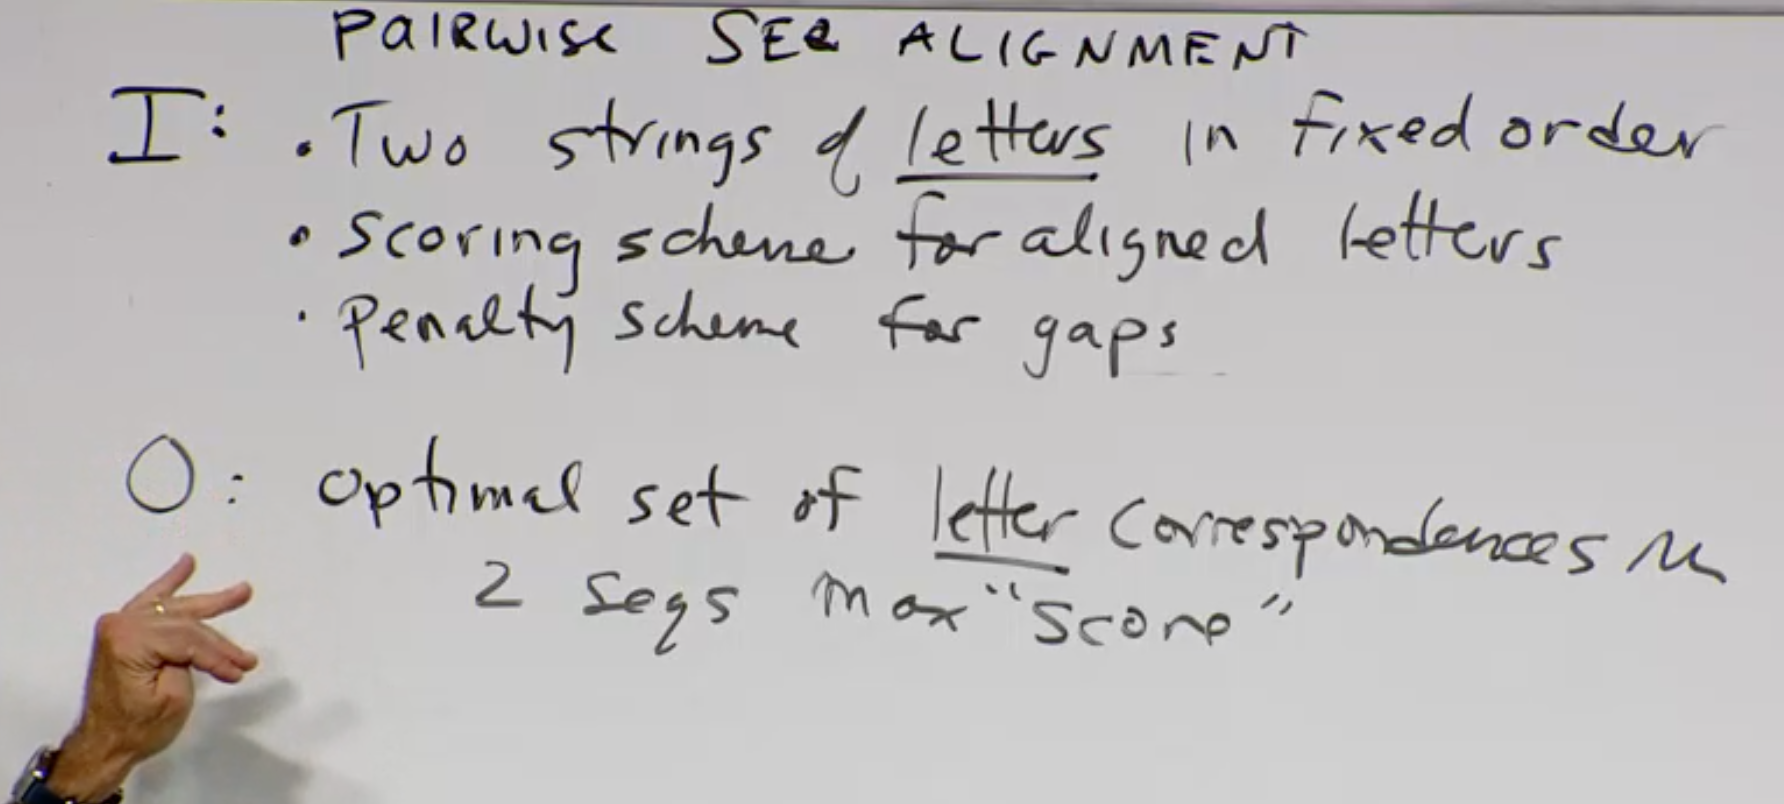 PAIRWISE SEQ ALIGNMENT
I: • Two strings of letters in fixed order
• scoring scheme for aligned letters
• Penalty scheme for gaps
O: optimal set of letter correspondences in
2 seqs max "score"